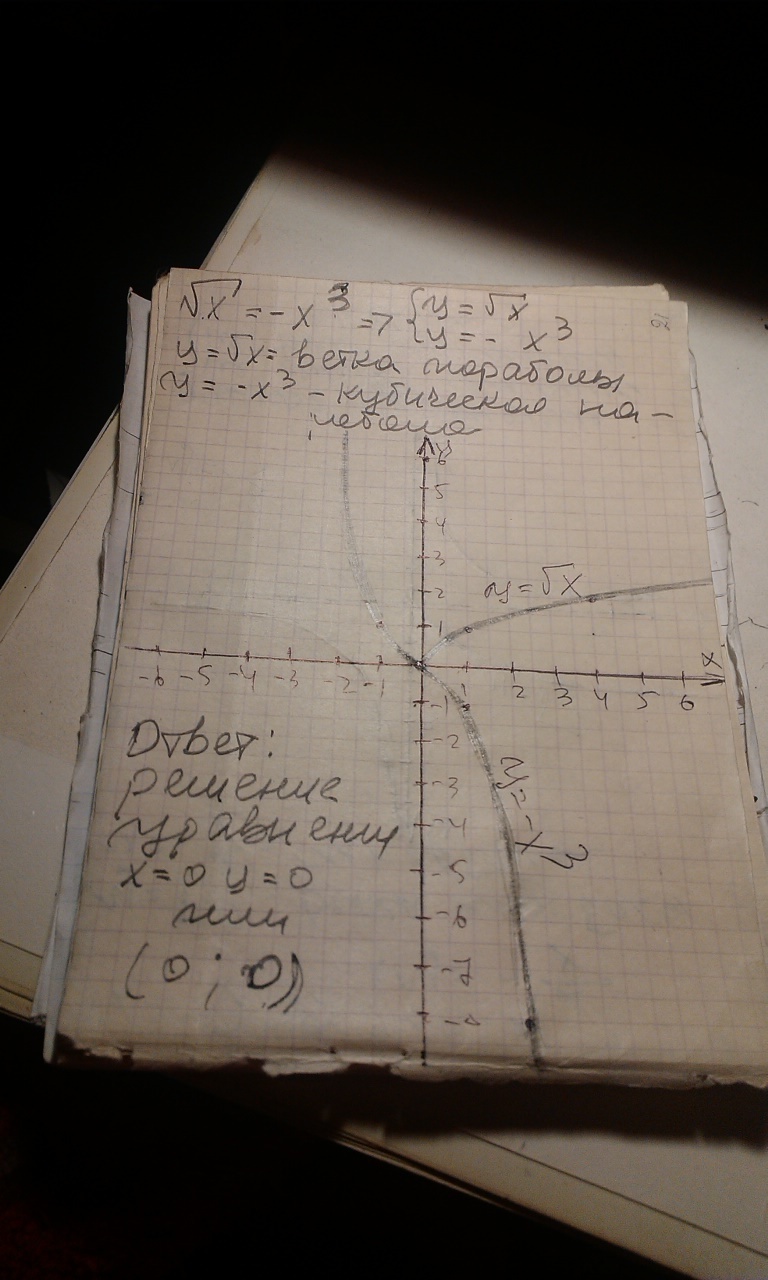 √x = -x³ => { y = √x
y = - x³
y = √x = ветка параболы
y = -x³ - кубическая па-
рабола
y
6
5
4
3
2
1
y = √x
x
-6 -5 -4 -3 -2 -1 1 2 3 4 5 6
-1
-2
-3
-4
-5
-6
-7
-8
y = -x³
Ответ:
решение
уравнения
x = 0 y = 0
или
(0 ; 0)